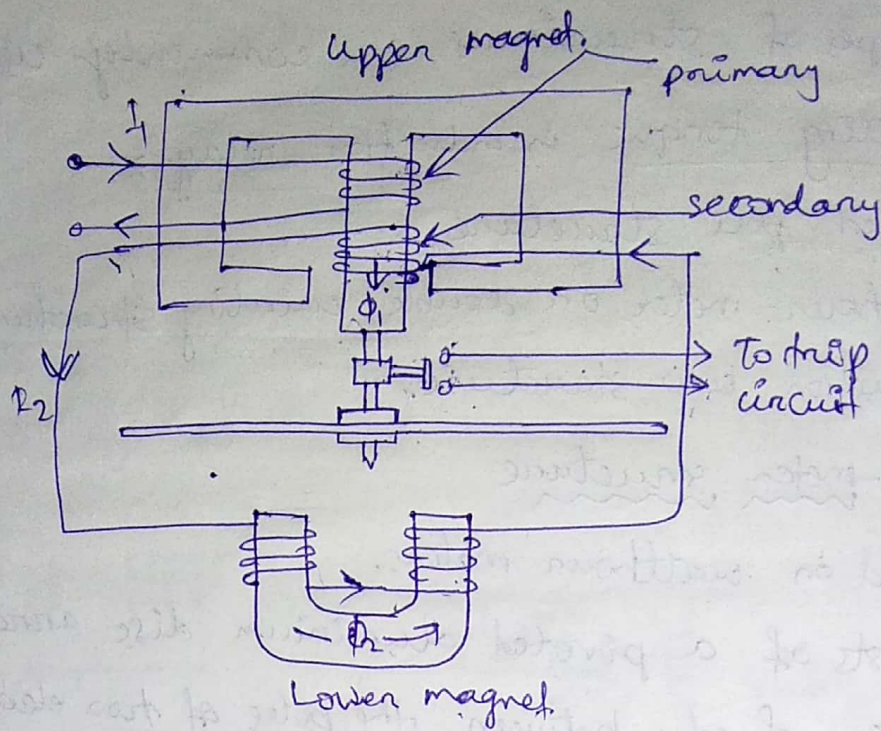 Upper magnet.
primary
I1
secondary
ϕ1
To trip
circuit
I2
ϕ2
Lower magnet